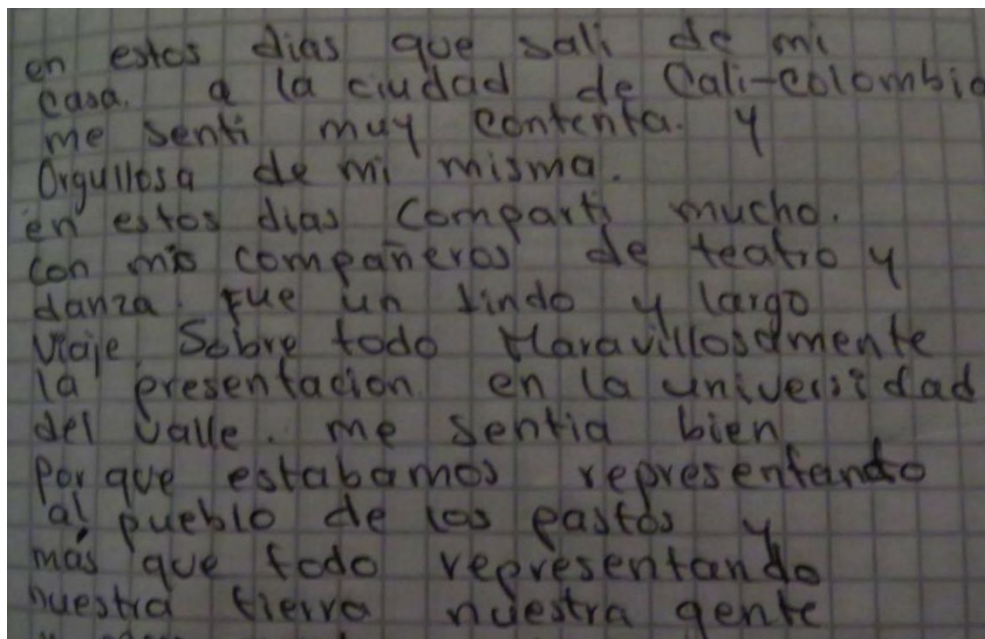 en estos dias que sali de mi
casa. a la ciudad de Cali-Colombia
me senti muy contenta. y
Orgullosa de mi misma.
en estos dias Comparti mucho.
con mis compañeros de teatro y
danza. Fue un lindo y largo
viaje. Sobre todo Maravillosamente
la presentacion en la universidad
del valle. me sentia bien
por que estabamos representando
al pueblo de los pastos y
más que todo representando
nuestra tierra nuestra gente